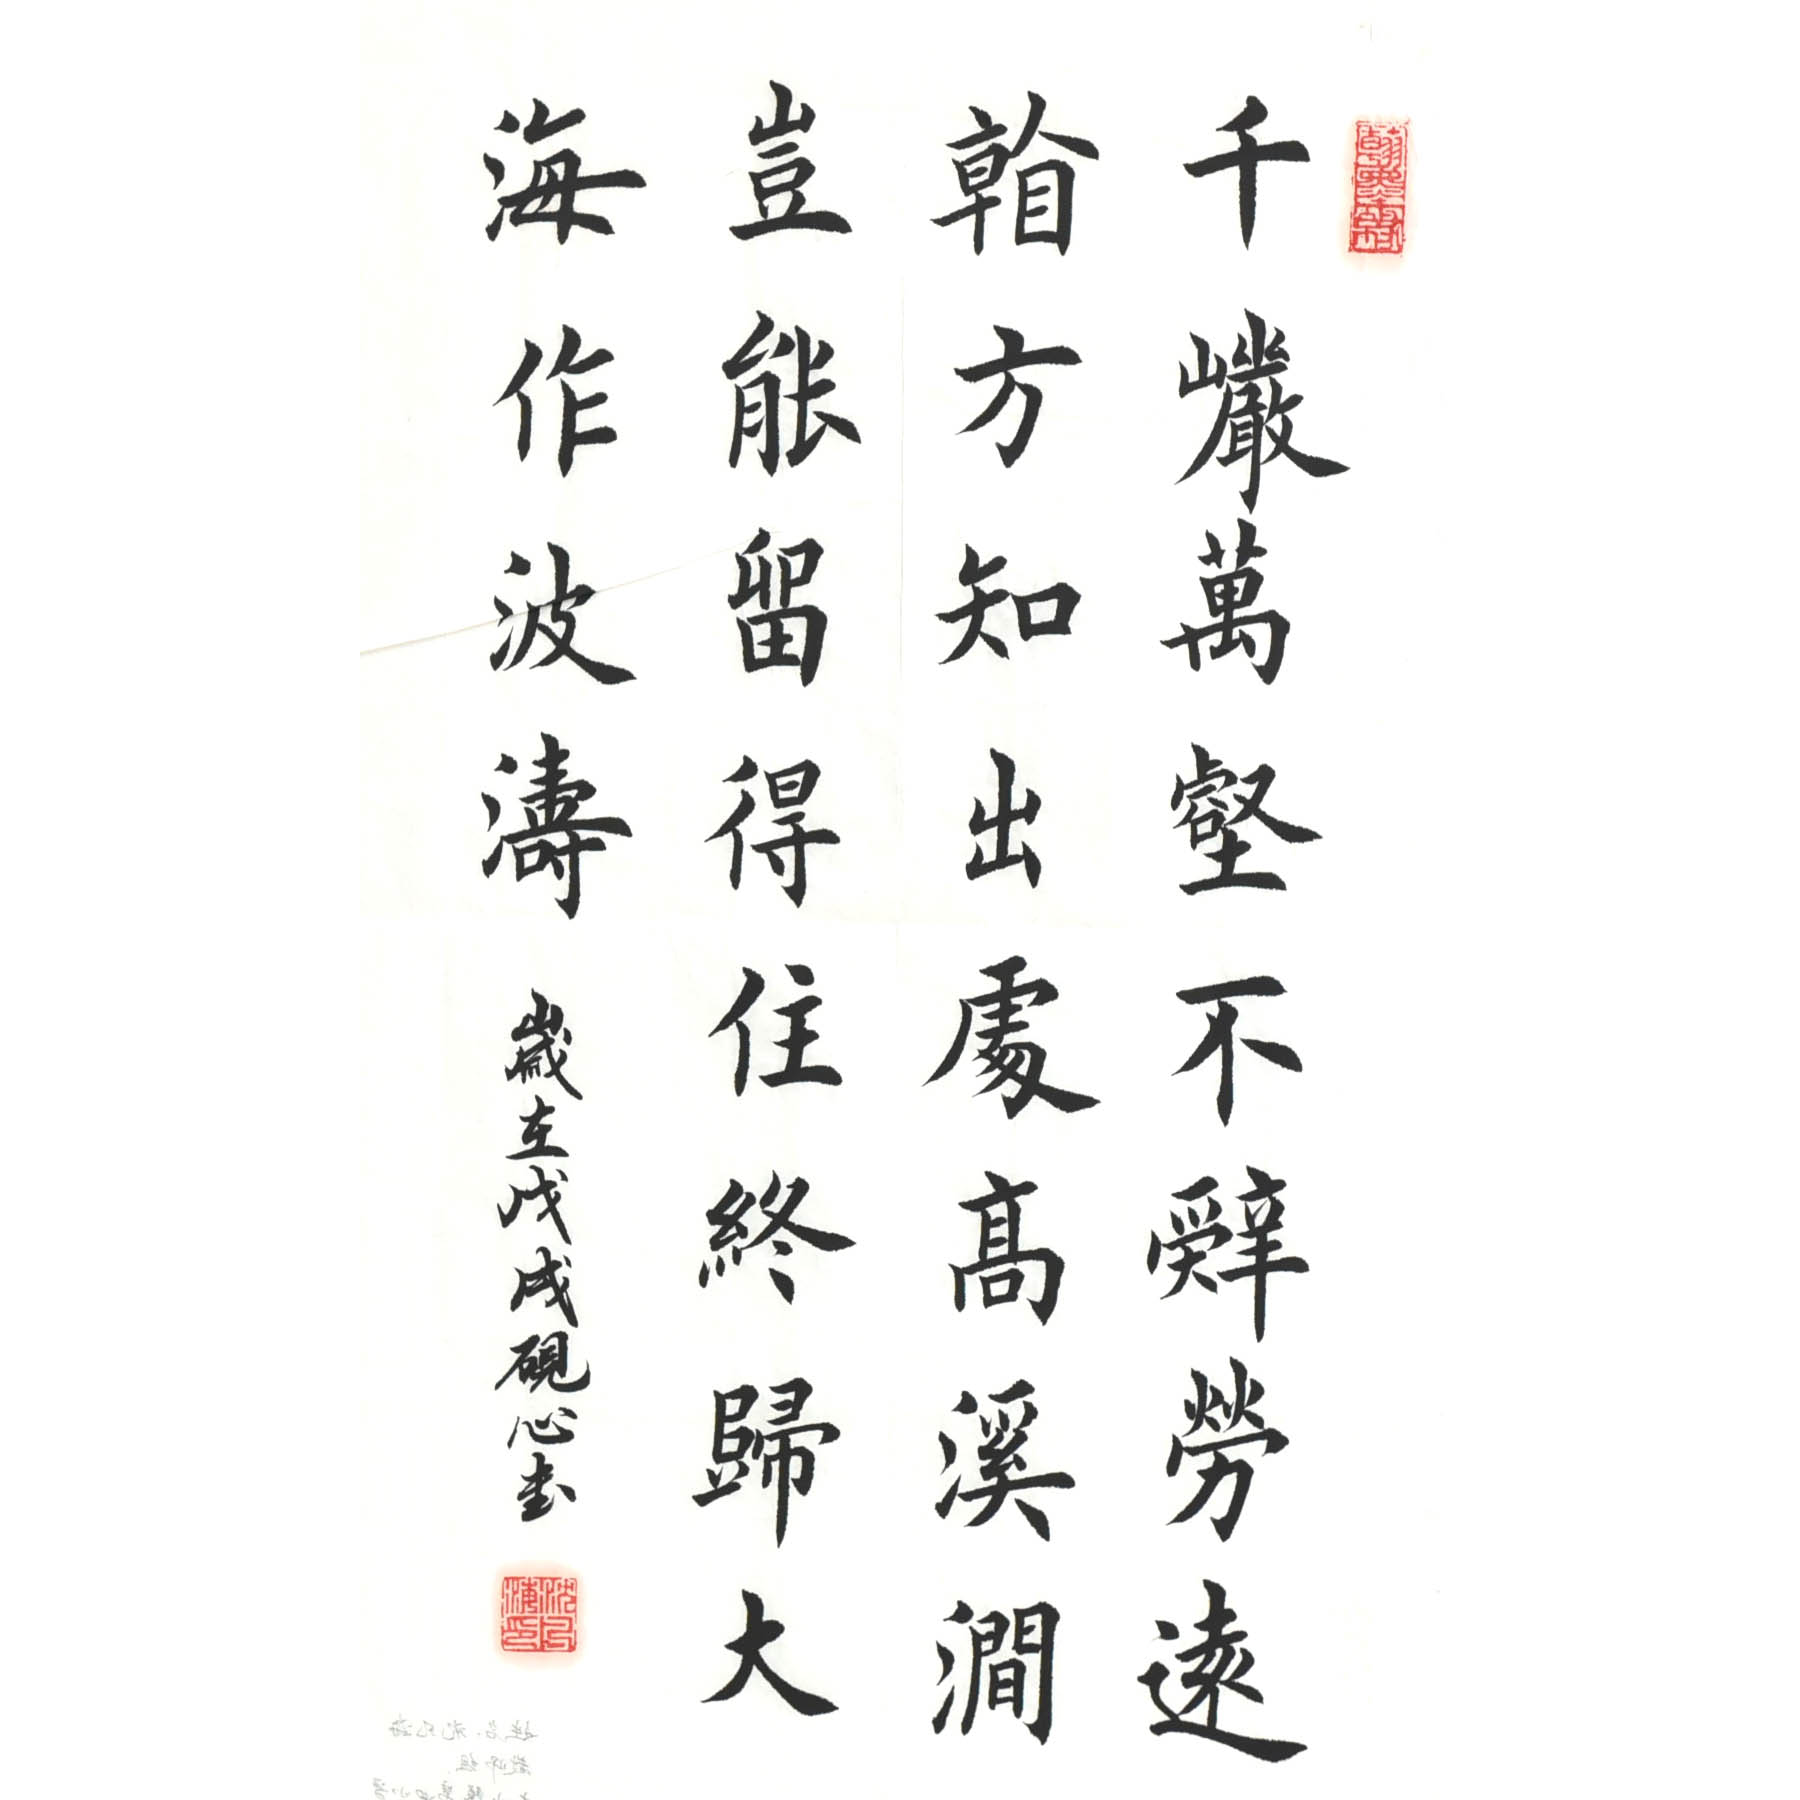 千巖萬壑不辭勞遠
㫥方知出處高溪澗
豈能留得住終歸大
海作波濤
歲在戊戌硯心書